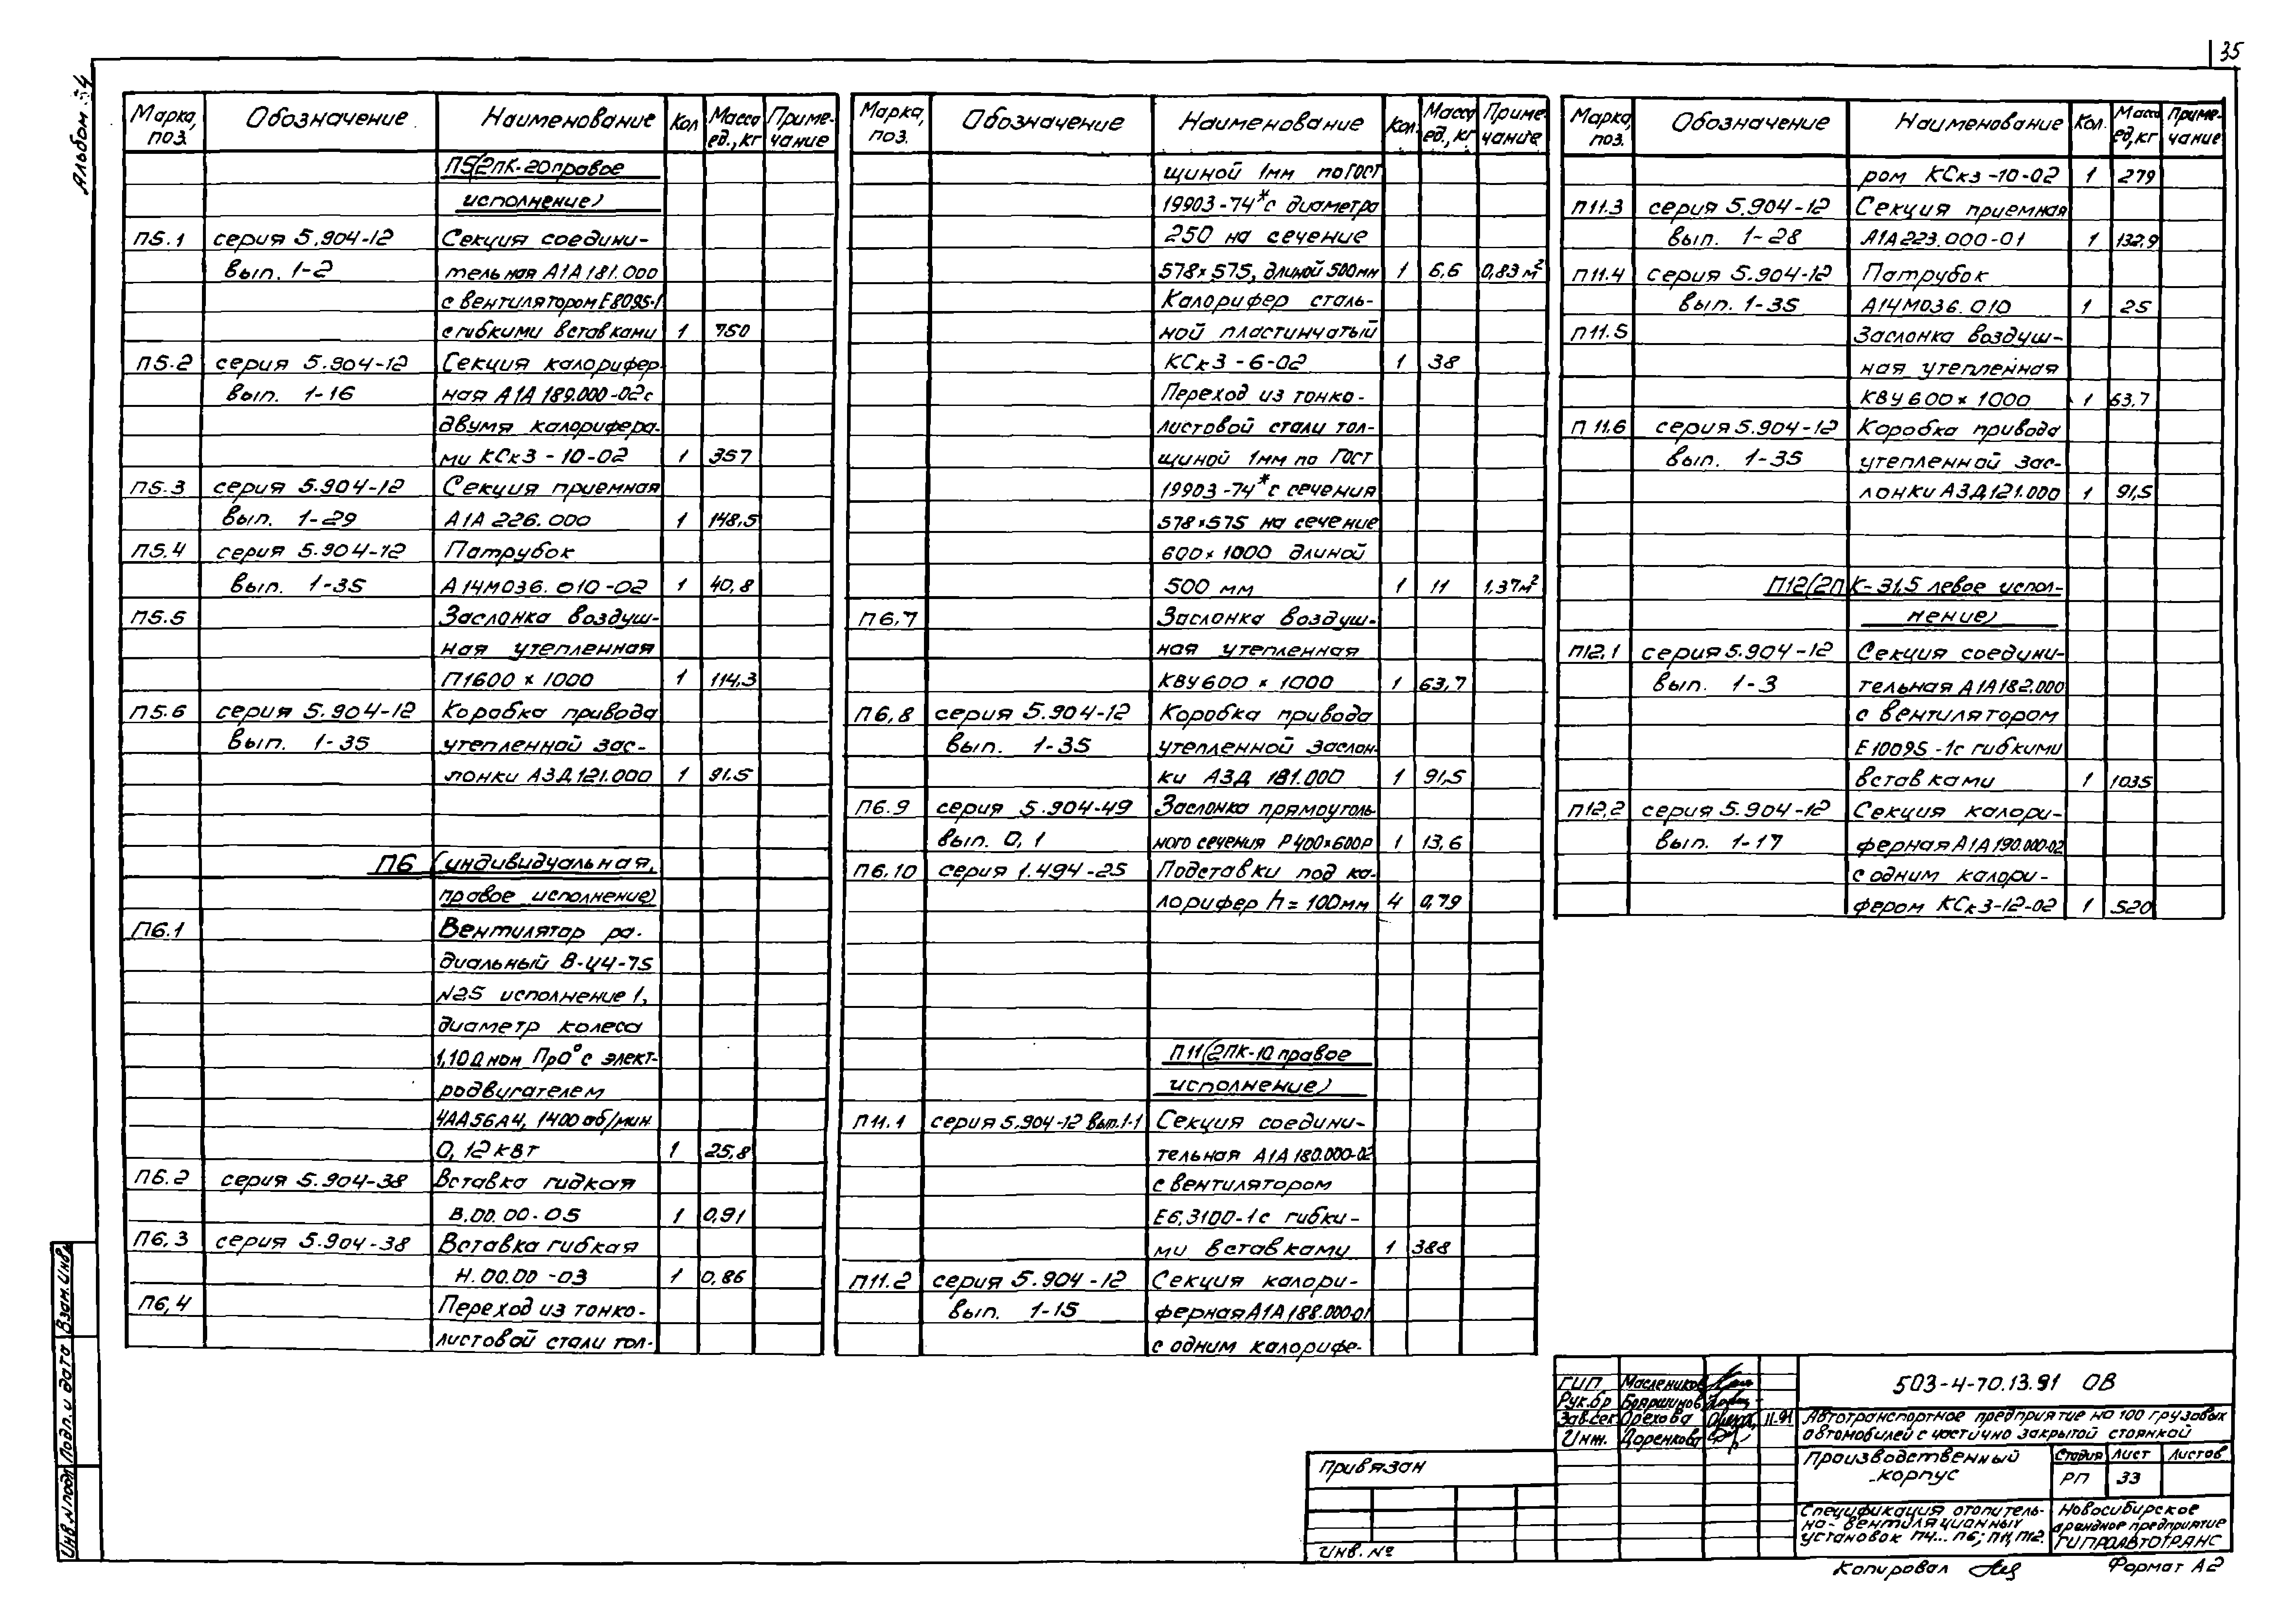 35
Альбом 34
Марка, поз. Обозначение Наименование Кол Масса ед., кг Приме-чание
П5(2ПК-20 правое
исполнение)
П5.1 серия 5.904-12 Секция соедини-
вып. 1-2 тельная А1А181.000
с вентилятором Е8095-1
с гибкими вставками 1 750
П5.2 серия 5.904-12 Секция калорифер
вып. 1-16 ная А1А189.000-02 с
двумя калорифера-
ми КСк3-10-02 1 357
П5.3 серия 5.904-12 Секция приемная
вып. 1-29 А1А 226.000 1 148,5
П5.4 серия 5.904-12 Патрубок
вып. 1-35 А14М036.010-02 1 40,8
П5.5 Заслонка воздуш-
ная утепленная
П1600 х 1000 1 114,3
П5.6 серия 5.904-12 Коробка привода
вып. 1-35 утепленной зас-
лонки А3Д121.000 1 91.5
П6 (индивидуальная,
правое исполнение)
П6.1 Вентилятор ра-
диальный В-Ц4-75
N25 исполнение 1,
диаметр колеса
1,10Дном Пр0° с элект-
родвигателем
4АА56А4, 1400 об/мин
0,12 квт 1 25,8
П6.2 серия 5.904-38 Вставка гидкая
В.00.00-05 1 0,91
П6,3 серия 5.904-38 Вставка гибкая
Н.00.00-03 1 0,86
П6,4 Переход из тонко-
листовой стали тол-
Марка, поз. Обозначение Наименование Кол. Масса ед., кг Приме-чание
щиной 1мм по ГОСТ
19903-74* с диаметра
250 на сечение
578×575, длиной 500мм 1 6,6 0,83 м²
Калорифер сталь-
ной пластинчатый
КСк3-6-02 1 38
Переход из тонко-
листовой стали тол-
щиной 1мм по ГОСТ
19903-74* с сечения
578×575 на сечение
600×1000 длиной
500 мм 1 11 1,37м²
П6,7 Заслонка воздуш-
ная утепленная
КВУ600 × 1000 1 63,7
П6,8 серия 5.904-12 Коробка привода
вып. 1-35 утепленной заслон-
ки А3Д 181.000 1 91,5
П6.9 серия 5.904-49 Заслонка прямоуголь
вып. 0,1 ного сечения Р400×600Р 1 13,6
П6.10 серия 1.494-25 Подставки под ка-
лорифер h=100мм 4 0,79
П11(2ПК-10 правое
исполнение)
П11.1 серия 5.904-12 вып.1-1 Секция соедини-
тельная А1А180.000-02
с вентилятором
Е6,3100-1с гибки-
ми вставками 1 388
П11.2 серия 5.904-12 Секция калори-
вып. 1-15 ферная А1А188.000-01
с одним калорифе-
Марка, поз. Обозначение Наименование Кол. Масса ед,кг Приме-чание
ром КСк3-10-02 1 279
П11.3 серия 5.904-12 Секция приемная
вып. 1-28 А1А223.000-01 1 132,9
П11.4 серия 5.904-12 Патрубок
вып. 1-35 А14М036.010 1 25
П11.5 Заслонка воздуш-
ная утепленная
КВУ600×1000 1 63,7
П11.6 серия 5.904-12 Коробка привода
вып. 1-35 утепленной зас-
лонки А3Д121.000 1 91,5
П12(2ПК-31,5 левое испол-
нение)
П12,1 серия 5.904-12 Секция соедини-
вып. 1-3 тельная А1А182.000
с вентилятором
Е10095-1с гибкими
вставками 1 1035
П12,2 серия 5.904-12 Секция калори-
вып. 1-17 ферная А1А190.000-02
с одним калори-
фером КСк3-12-02 1 520
Взам.инв.
Подп.и дата
Инв.N подл
Привязан
Инв. №
ГИП Маслеников
Рук.бр Бояршинов
Зав.сек Орехова 11.91
Инж. Доренкова
503-4-70.13.91 ОВ
Автотранспортное предприятие на 100 грузовых
автомобилей с частично закрытой стоянкой
Производственный
корпус
Стадия Лист Листов
РП 33
Спецификация отопитель-
но-вентиляционных
установок П4...П6; П11,П12.
Новосибирское
арендное предприятие
ГИПРОАВТОТРАНС
Копировал
Формат А2